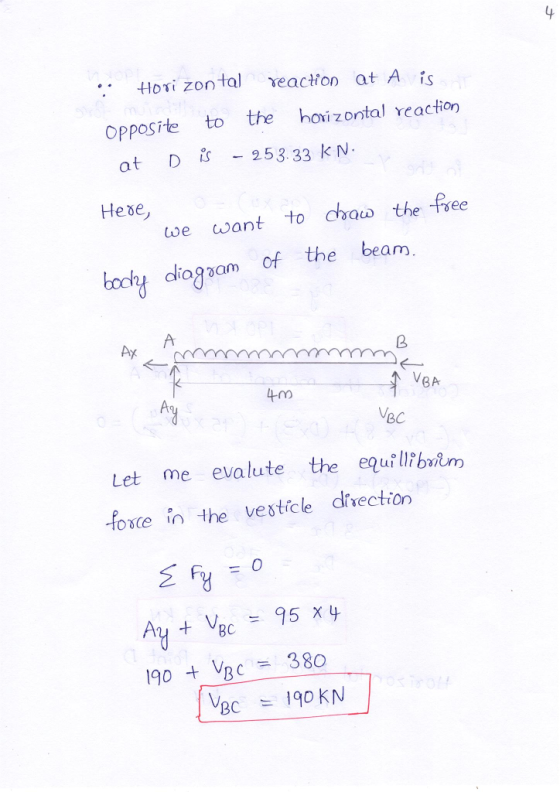 4
∵ Horizontal reaction at A is
opposite to the horizontal reaction
at D is - 253.33 KN.
Here,
we want to draw the free
body diagram of the beam.
A B
Ax VBA
4m
Ay VBC
Let me evalute the equillibrium
force in the verticle direction
Σ Fy = 0
Ay + VBC = 95 x 4
190 + VBC = 380
VBC = 190 KN